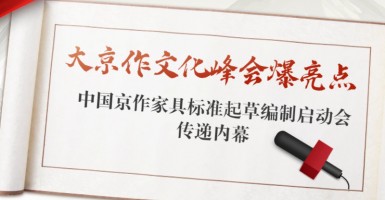 大京作文化峰会爆亮点
中国京作家具标准起草编制启动会
传递内幕